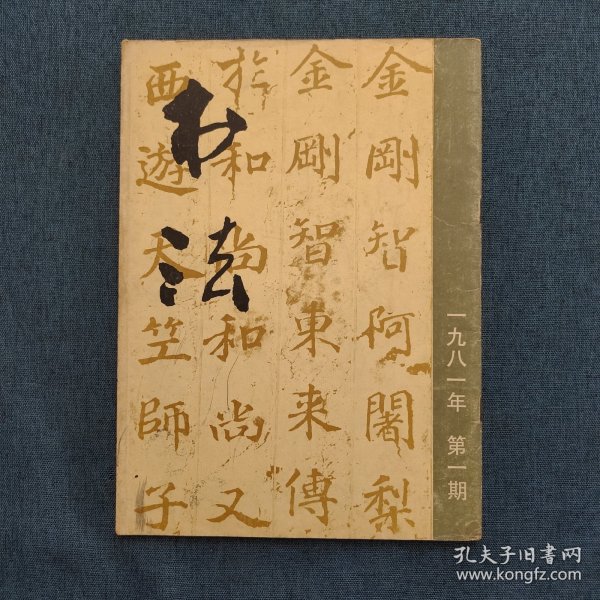 书法
金剛智阿闍梨
金剛智東来傳
於和尚和尚又
西遊天竺師子
一九八一年 第一期
孔夫子旧書网
www.kongfz.com